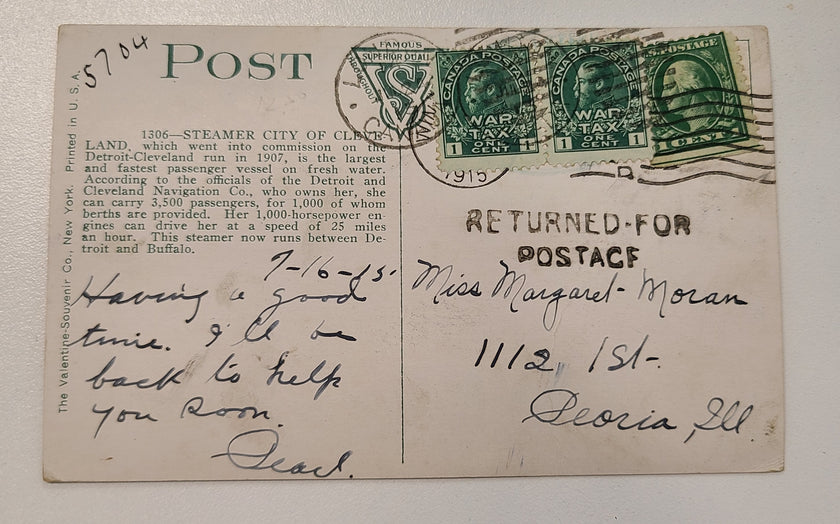 5704
POST
FAMOUS
SUPERIOR QUALI
THROUGHOUT
CANADA POSTAGE
WAR
TAX
ONE
CENT
1 1
CANADA POSTAGE
WAR
TAX
ONE
CENT
1 1
U.S. POSTAGE
1 CENT 1
1915
Printed in U. S. A.
The Valentine-Souvenir Co., New York.
1306—STEAMER CITY OF CLEVE-
LAND, which went into commission on the
Detroit-Cleveland run in 1907, is the largest
and fastest passenger vessel on fresh water.
According to the officials of the Detroit and
Cleveland Navigation Co., who owns her, she
can carry 3,500 passengers, for 1,000 of whom
berths are provided. Her 1,000-horsepower en-
gines can drive her at a speed of 25 miles
an hour. This steamer now runs between De-
troit and Buffalo.
7-16-15.
Having a good
time. I'll be
back to help
you soon.
Pearl.
RETURNED-FOR
POSTAGE
Miss Margaret Moran
1112, 1st.
Peoria, Ill.